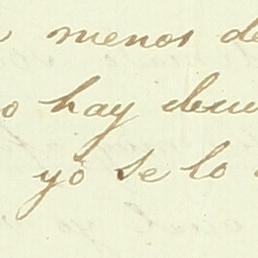 menos de
o hay
yo se lo